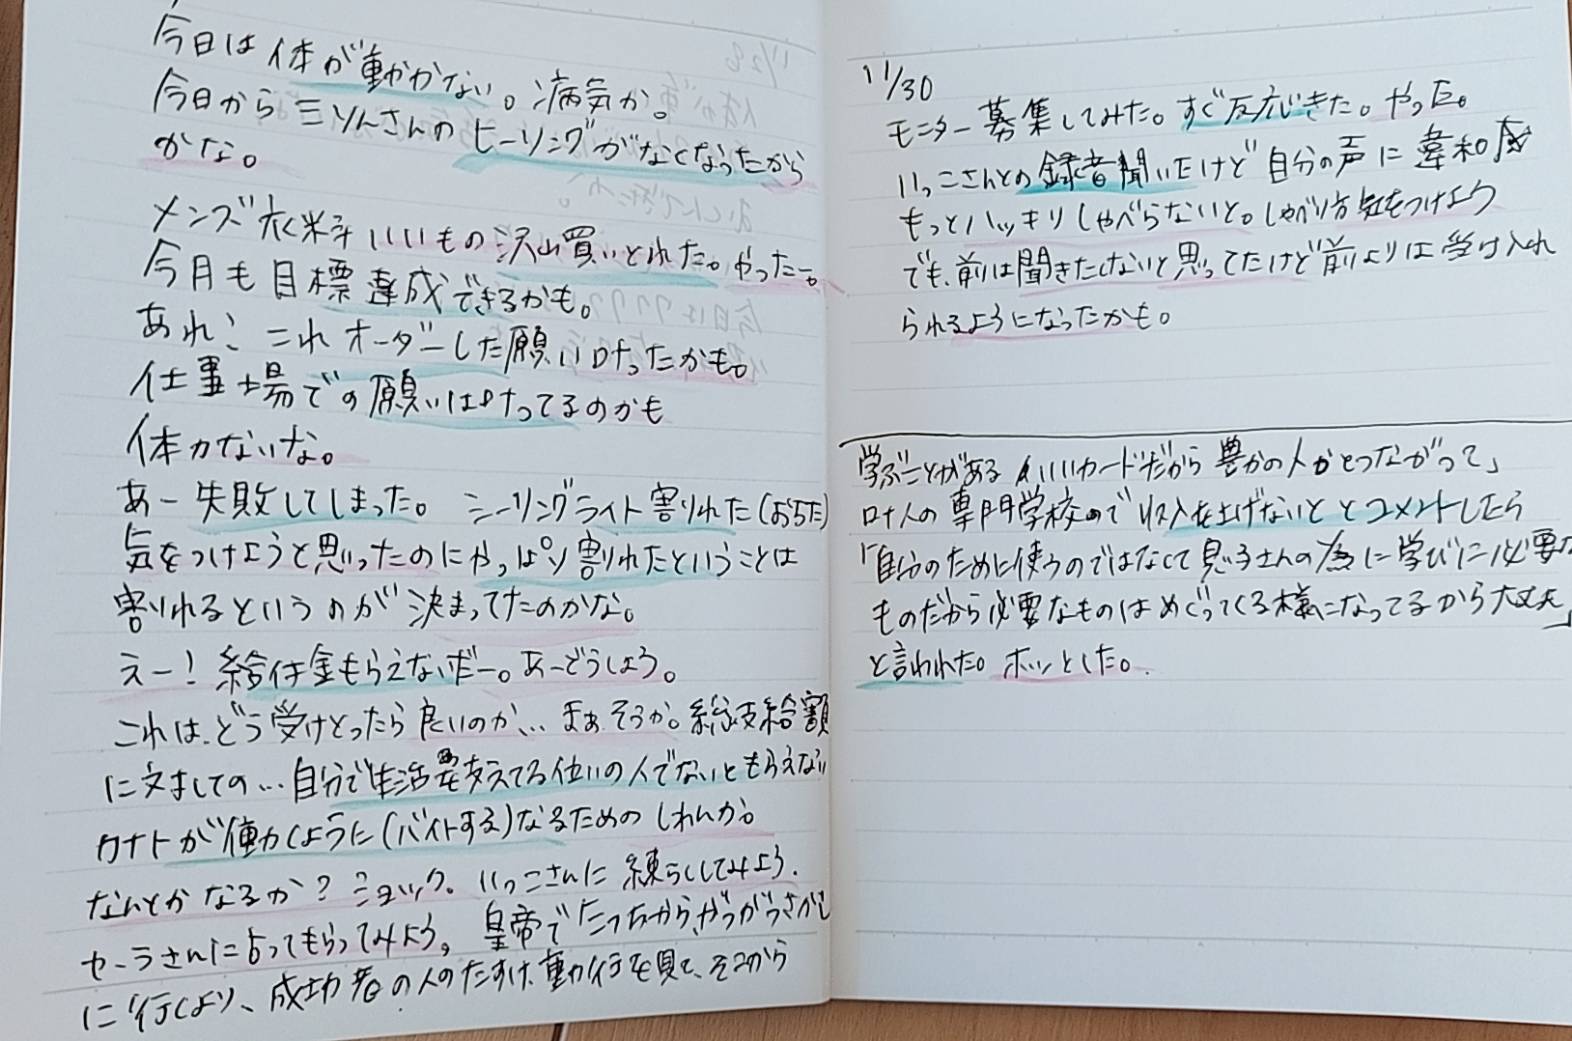 今日は体が動かかない。病気か。
今日から三りんさんのヒーリングがなくなったから
かな。
メンズ水米子いいもの沢山買いとれた。やったー。
今月も目標達成できるかも。
あれ！これオーダーした願い叶ったかも。
仕事場での願いは叶ってるのかも
体力ないな。
あー失敗してしまった。シーリングライト割りれた(おちた)
気をつけようと思ったのにやっぱり割りれたということは
割りれるというのが決まってたのかな。
えー！給付金もらえないだー。あーどうしよう。
これは、どう受けとったら良いのか、… まぁそうか。総支給額
に対しての…自分で生活を支えてる位いの人でないともらえない
カナトが働くように(バイトする)なるためのしれんか。
なんとかなるか？ショック。いっこさんに練らししてみよう.
セーラさんに占ってもらってみよう。皇帝で
に行くより、成功者の人のたすけ、動行を見て、そこから
11/30
モニター募集してみた。すぐ反応きた。やった。
いっこさんとの録音聞いたけど自分の声に違和感
もっとハッキリしゃべらないと。しゃべり方気をつけよう
でも、前は聞きたくないと思ってたけど前よりは受け入れ
られるようになったかも。
学ぶことがある いいカードだから豊かの人がとつながって」
ロナ人の専門学校ので収入を上げないととコメントしたら
「自分のために使うのではなくて息子さんの為に学びに必要な
ものだから必要なものはめぐってくる様になってるから大丈夫」
と言われた。ホッとした。